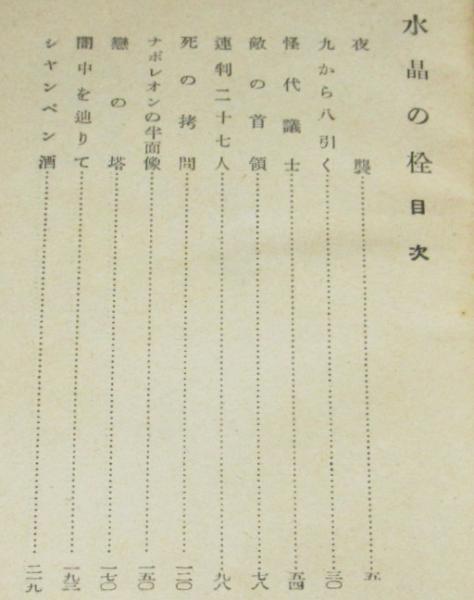 水晶の栓 目次
夜襲……五
九から八引く……三〇
怪代議士……五四
敵の首領……七八
連判二十七人……九八
死の拷問……一二〇
ナポレオンの半面像……一五〇
戀の塔……一七〇
闇中を辿りて……一九三
シヤンペン酒……二一九